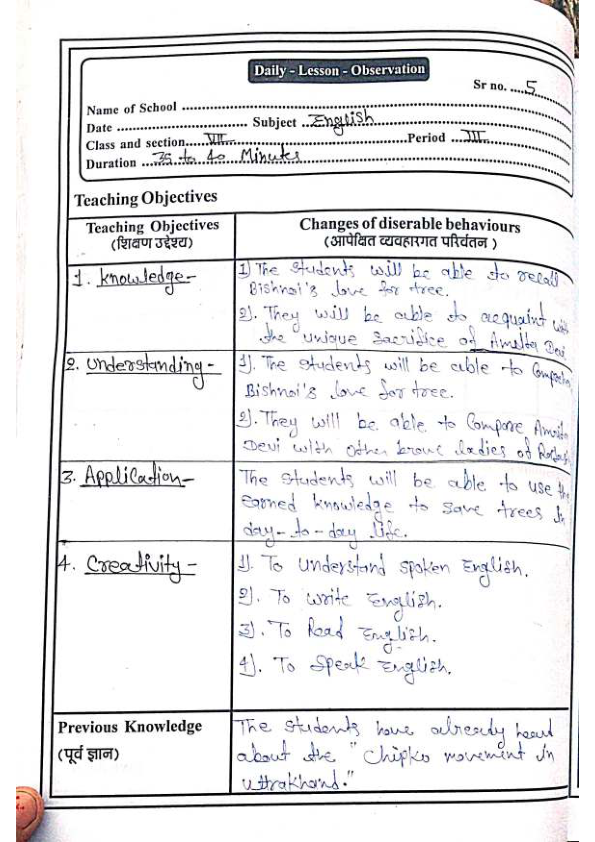 Daily - Lesson - Observation
Sr no. .... 5
Name of School
Date ........ Subject .. English
Class and section.... VII ........Period .. III
Duration .... 35 to 40 Minutes
Teaching Objectives
Teaching Objectives
(शिक्षण उद्देश्य)
Changes of diserable behaviours
(आपेक्षित व्यवहारगत परिर्वतन )
1. Knowledge-
1) The students will be able to recall
Bishnoi's love for tree.
2). They will be able to acquaint with
the unique sacrifice of Amrita Devi
2. Understanding-
1). The students will be able to
Bishnoi's love for tree.
2). They will be able to Compare
Devi with other brave ladies of
3. Application-
The students will be able to use the
earned knowledge to save trees in
day-to-day life.
4. Creativity-
1). To understand spoken English.
2). To write English.
3). To Read English.
4). To Speak English.
Previous Knowledge
(पूर्व ज्ञान)
The students have already heard
about the "Chipko movement in
Uttrakhand."